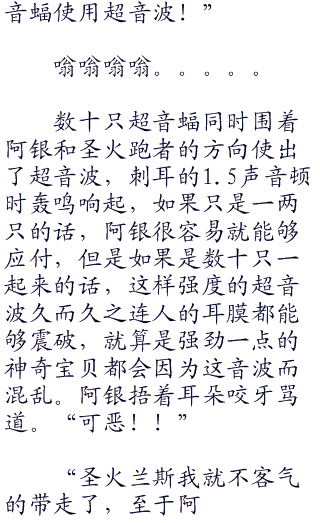 音蝠使用超音波！”
嗡嗡嗡嗡。。。。。
数十只超音蝠同时围着
阿银和圣火跑者的方向使出
了超音波，刺耳的1.5声音顿
时轰鸣响起，如果只是一两
只的话，阿银很容易就能够
应付，但是如果是数十只一
起来的话，这样强度的超音
波久而久之连人的耳膜都能
够震破，就算是强劲一点的
神奇宝贝都会因为这音波而
混乱。阿银捂着耳朵咬牙骂
道。“可恶！！”
“圣火兰斯我就不客气
的带走了，至于阿